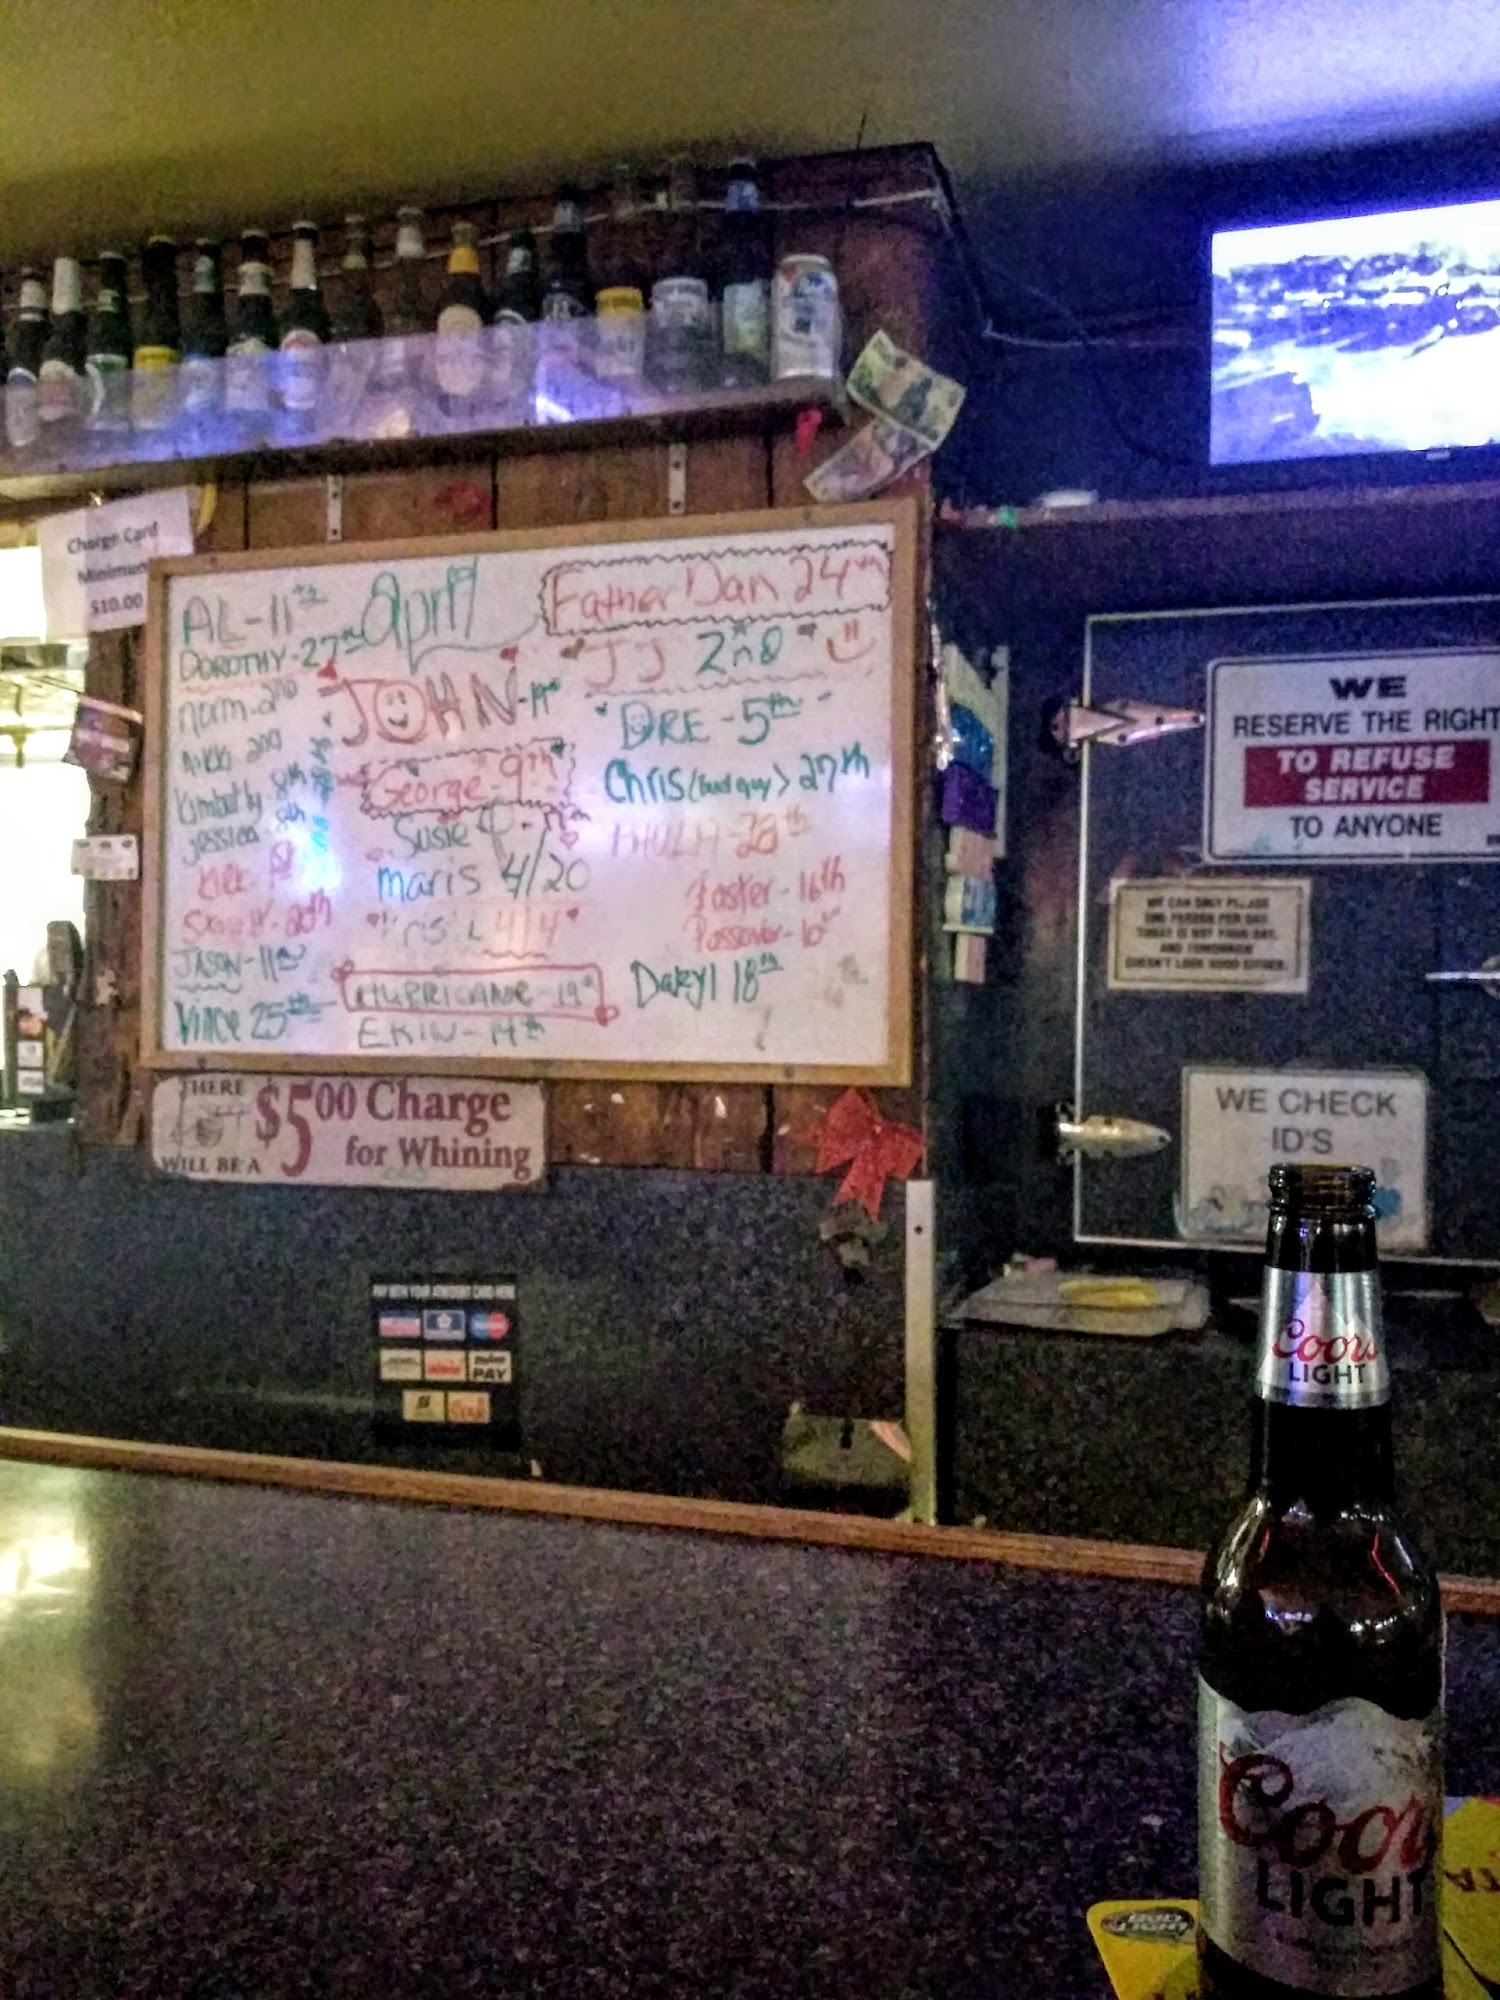 Charge Card
Minimum
$10.00
April
AL-11th
DOROTHY-27th
norm-2nd
Nikki 2nd
Kimberly 8th
Jessica 8th
Kirk
20th
JASON-11th
Vince 25th
JOHN-19th
George-9th
Susie
Maris 4/20
4/4
HURRICANE-19th
EKIN-14th
Father Dan 24th
JJ 2nd
DRE-5th
Chris (bud guy) 27th
28th
Easter-16th
Passover-10th
Daryl 18th
THERE
WILL BE A
$5.00 Charge
for Whining
WE
RESERVE THE RIGHT
TO REFUSE
SERVICE
TO ANYONE
WE CAN ONLY PLEASE
ONE PERSON PER DAY.
TODAY IS NOT YOUR DAY,
AND TOMORROW
DOESN'T LOOK GOOD EITHER.
WE CHECK
ID'S
PAY WITH YOUR HERE
PAY
Coors
LIGHT
Coors
LIGHT